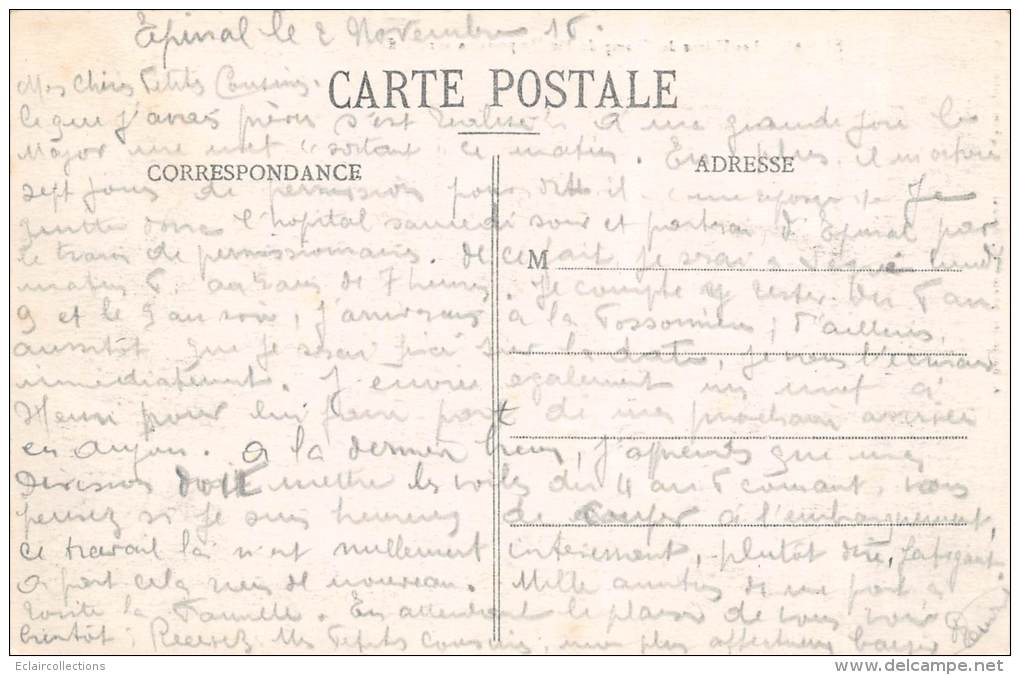 Epinal le 2 Novembre 16.
Mes Chers Petits Cousins.
CARTE POSTALE
Ce que j'avais prévu s'est réalisé. A ma grande joie le
Major me met "sortant" ce matin. En plus, il m'octroie
CORRESPONDANCE
ADRESSE
sept jours de permission pour dit il me reposer. Je
quitte donc l'hopital samedi soir et partirai d'Epinal par
le train de permissionnaires. De ce fait je serai à Segré lundi
M
matin 6, au train de 7 heures. Je compte y rester du 6 au
9 et le 9 au soir, j'arriverais à la Possonnière; d'ailleurs,
aussitôt que je serai fixé sur la date, je vous l'écrirai
immédiatement. J'envoie également un mot à
Henri pour lui faire part de ma prochaine arrivée
en Anjou. A la dernière heure, j'apprends que ma
Division doit mettre les voiles du 4 au 6 courant, vous
pensez si je suis heureux de couper à l'embarquement,
ce travail là n'est nullement intéressant, plutôt dire, fatigant.
A part cela rien de nouveau. Mille amitiés de ma part à
toute la Famille. En attendant le plaisir de vous voir
bientôt, Recevez Mes Petits Cousins, mes plus affectueux baisers
Eclaircollections
www.delcampe.net